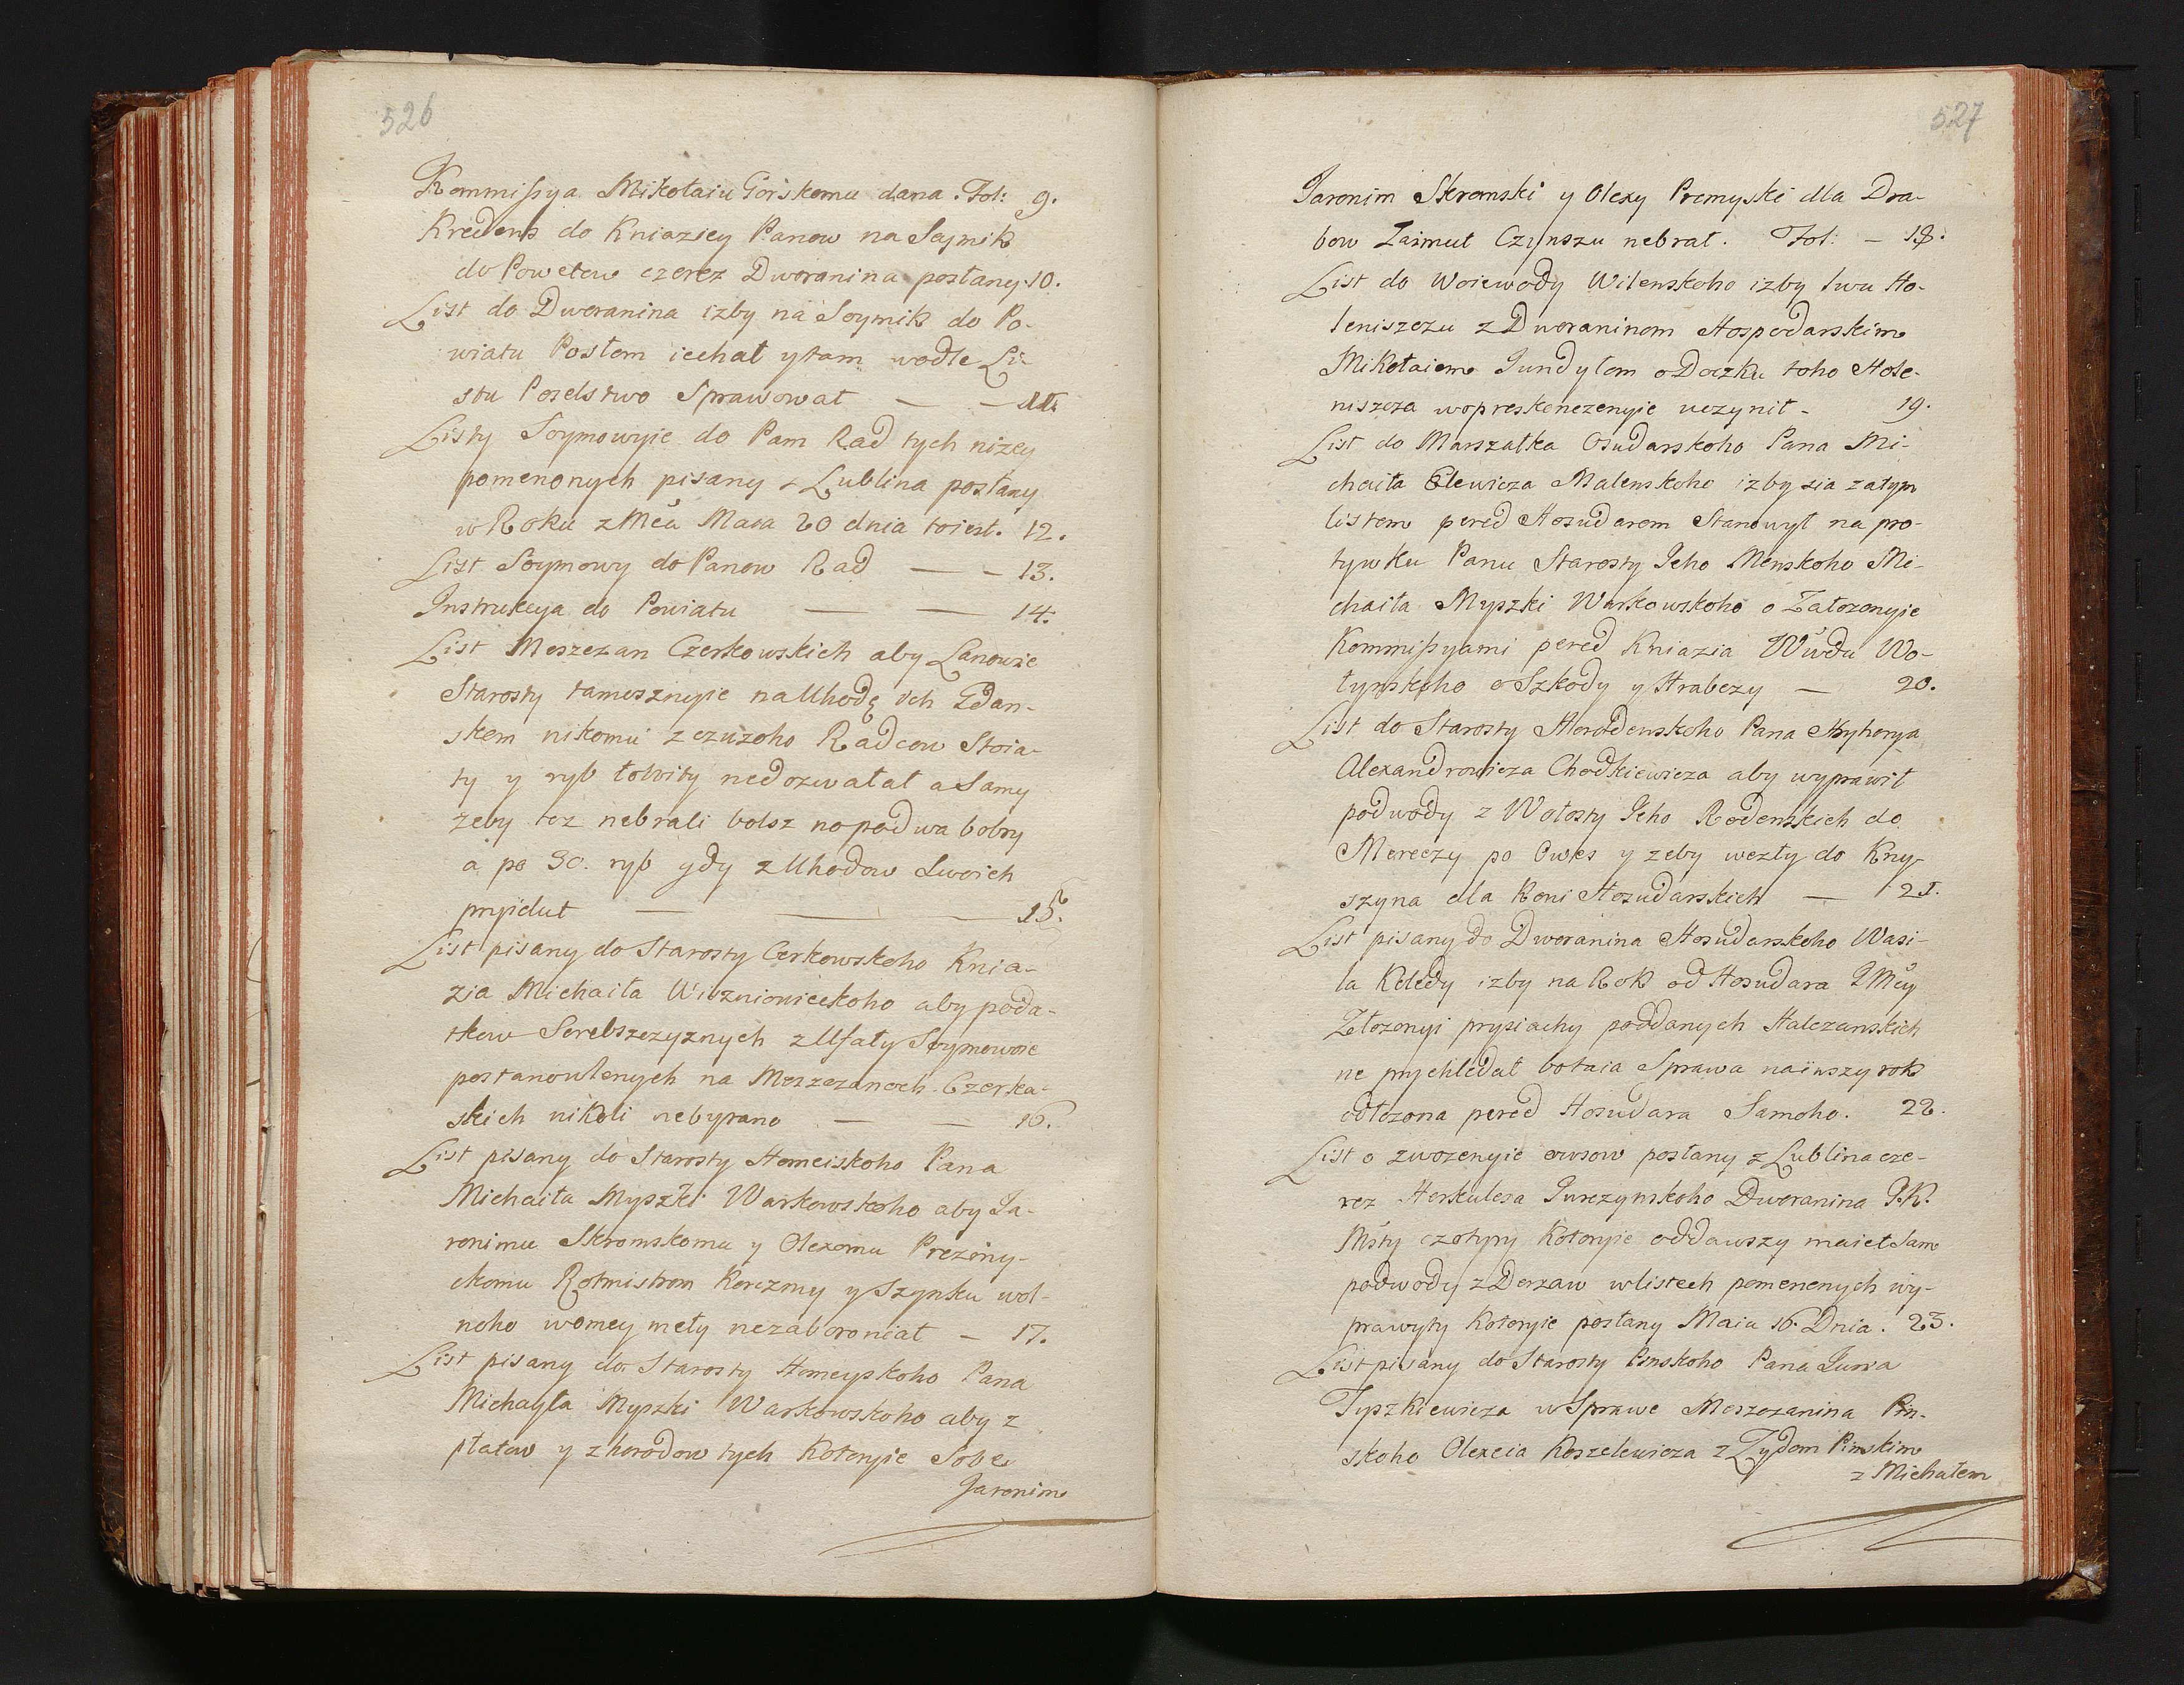 526
Kommissya Mikołaiu Gorskomu dana. Fol: 9.
Kredens do Kniaziey Panow na Seymik
do Powetow czerez Dworanina posłany. 10.
List do Dworanina izby na Soymik do Po-
wiatu Posłem iechał y tam wodle Li-
stu Poselstwo Sprawował — — 11.
Listy Soymowyie do Pam Rad tych niżey
pomenonych pisany z Lublina posłany
w Roku z Mca Maia 20 dnia toiest. 12.
List Soymowy do Panow Rad — — 13.
Instrukcya do Powiatu — — 14.
List Meszczan Czerkowskich aby Panowie
Starosty tamosznyie na Uhodę ich
skem nikomu z czużoho Radcow Stoia-
ty y ryb łowity nedozwalał a Samy
żeby też nebrali bolsz no po dwa bobry
a po 30. ryb gdy z Uhodow Swoich
pryidut — — — 15.
List pisany do Starosty Czerkowskoho Knia-
zia Michaiła Wiszniowieckoho aby poda-
tkow Serebszczyznych z Ufały Soymowoie
postanowlenych na Meszczanoch Czerka-
skich nikoli nebyrano — — 16.
List pisany do Starosty Homeiskoho Pana
Michaiła Myszki Warkowskoho aby Ja-
ronimu Skromskomu y Olexomu Prezmy-
ckomu Rotmistrom Korczmy y Szynku wol-
noho womey mety nezaboroniał — 17.
List pisany do Starosty Homeyskoho Pana
Michayła Myszki Warkowskoho aby z
płatow y z horodow tych Kotoryie Sobe
Jaronim
527
Jaronim Skromski y Olexy Premyski dla Dra-
bow Zaimut Czynszu nebrał. Fol: — 18.
List do Woiewody Wilenskoho izby Iwu Ho-
leniszczu z Dworaninom Hospodarskim
Mikołaiem Jundyłom o Doczku toho Hole-
niszcza wopreskenczenyie uczynił — 19.
List do Marszałka Osudarskoho Pana Mi-
chaiła Elewicza Malenskoho izby sia zatym
listem pered Hosudarom Stanowył na pro-
tywku Panu Starosty Jeho Menskoho Mi-
chaiła Myszki Warkowskoho o Założonyie
Kommissyami pered Kniazia Wwdu Wo-
łynskoho o Szkody y Hrabeży — 20.
List do Starosty Horodenskoho Pana Hryhorya
Alexandrowicza Chodkiewicza aby wyprawił
podwody z Wołosty Jeho Rodenskich do
Mereczy po Owes y żeby wezły do Kny-
szyna dla Koni Hosudarskich — 21.
List pisany do Dworanina Hosudarskoho Wasi-
la Koledy izby na Rok od Hosudara J Mcy
Złożonyi prysiachy poddanych Halczanskich
ne prychledał botaia Sprawa na inszy rok
odłożona pered Hosudara Samoho. 22.
List o zwożenyie owsow posłany z Lublina cze-
rez Herkulesa Jurczynskoho Dworanina J. K.
Msty czotyry Kotoryie oddawszy maiet Sam
podwody z Derżaw w listech pomenenych wy-
prawyty Kotoryie posłany Maia 16 Dnia. 23.
List pisany do Starosty Pinskoho Pana Juria
Tyszkiewicza w Sprawe Meszczanina Pin-
skoho Olexeia Koszelewicza z Żydom Pinskim
z Michałem